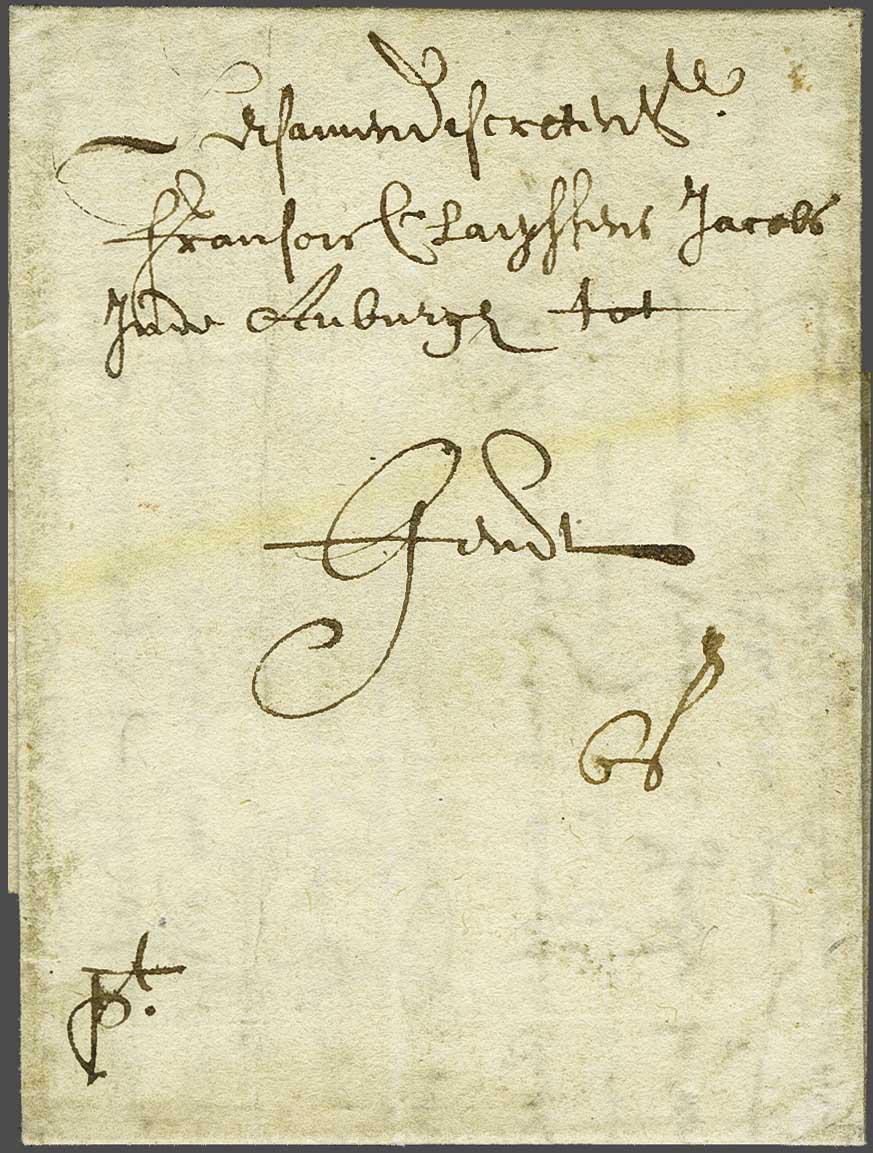 Eersamen discreten Sr
Fransois Claeyssens Jacobs
Inde Auburgh tot
Gendt
6 s
pt.